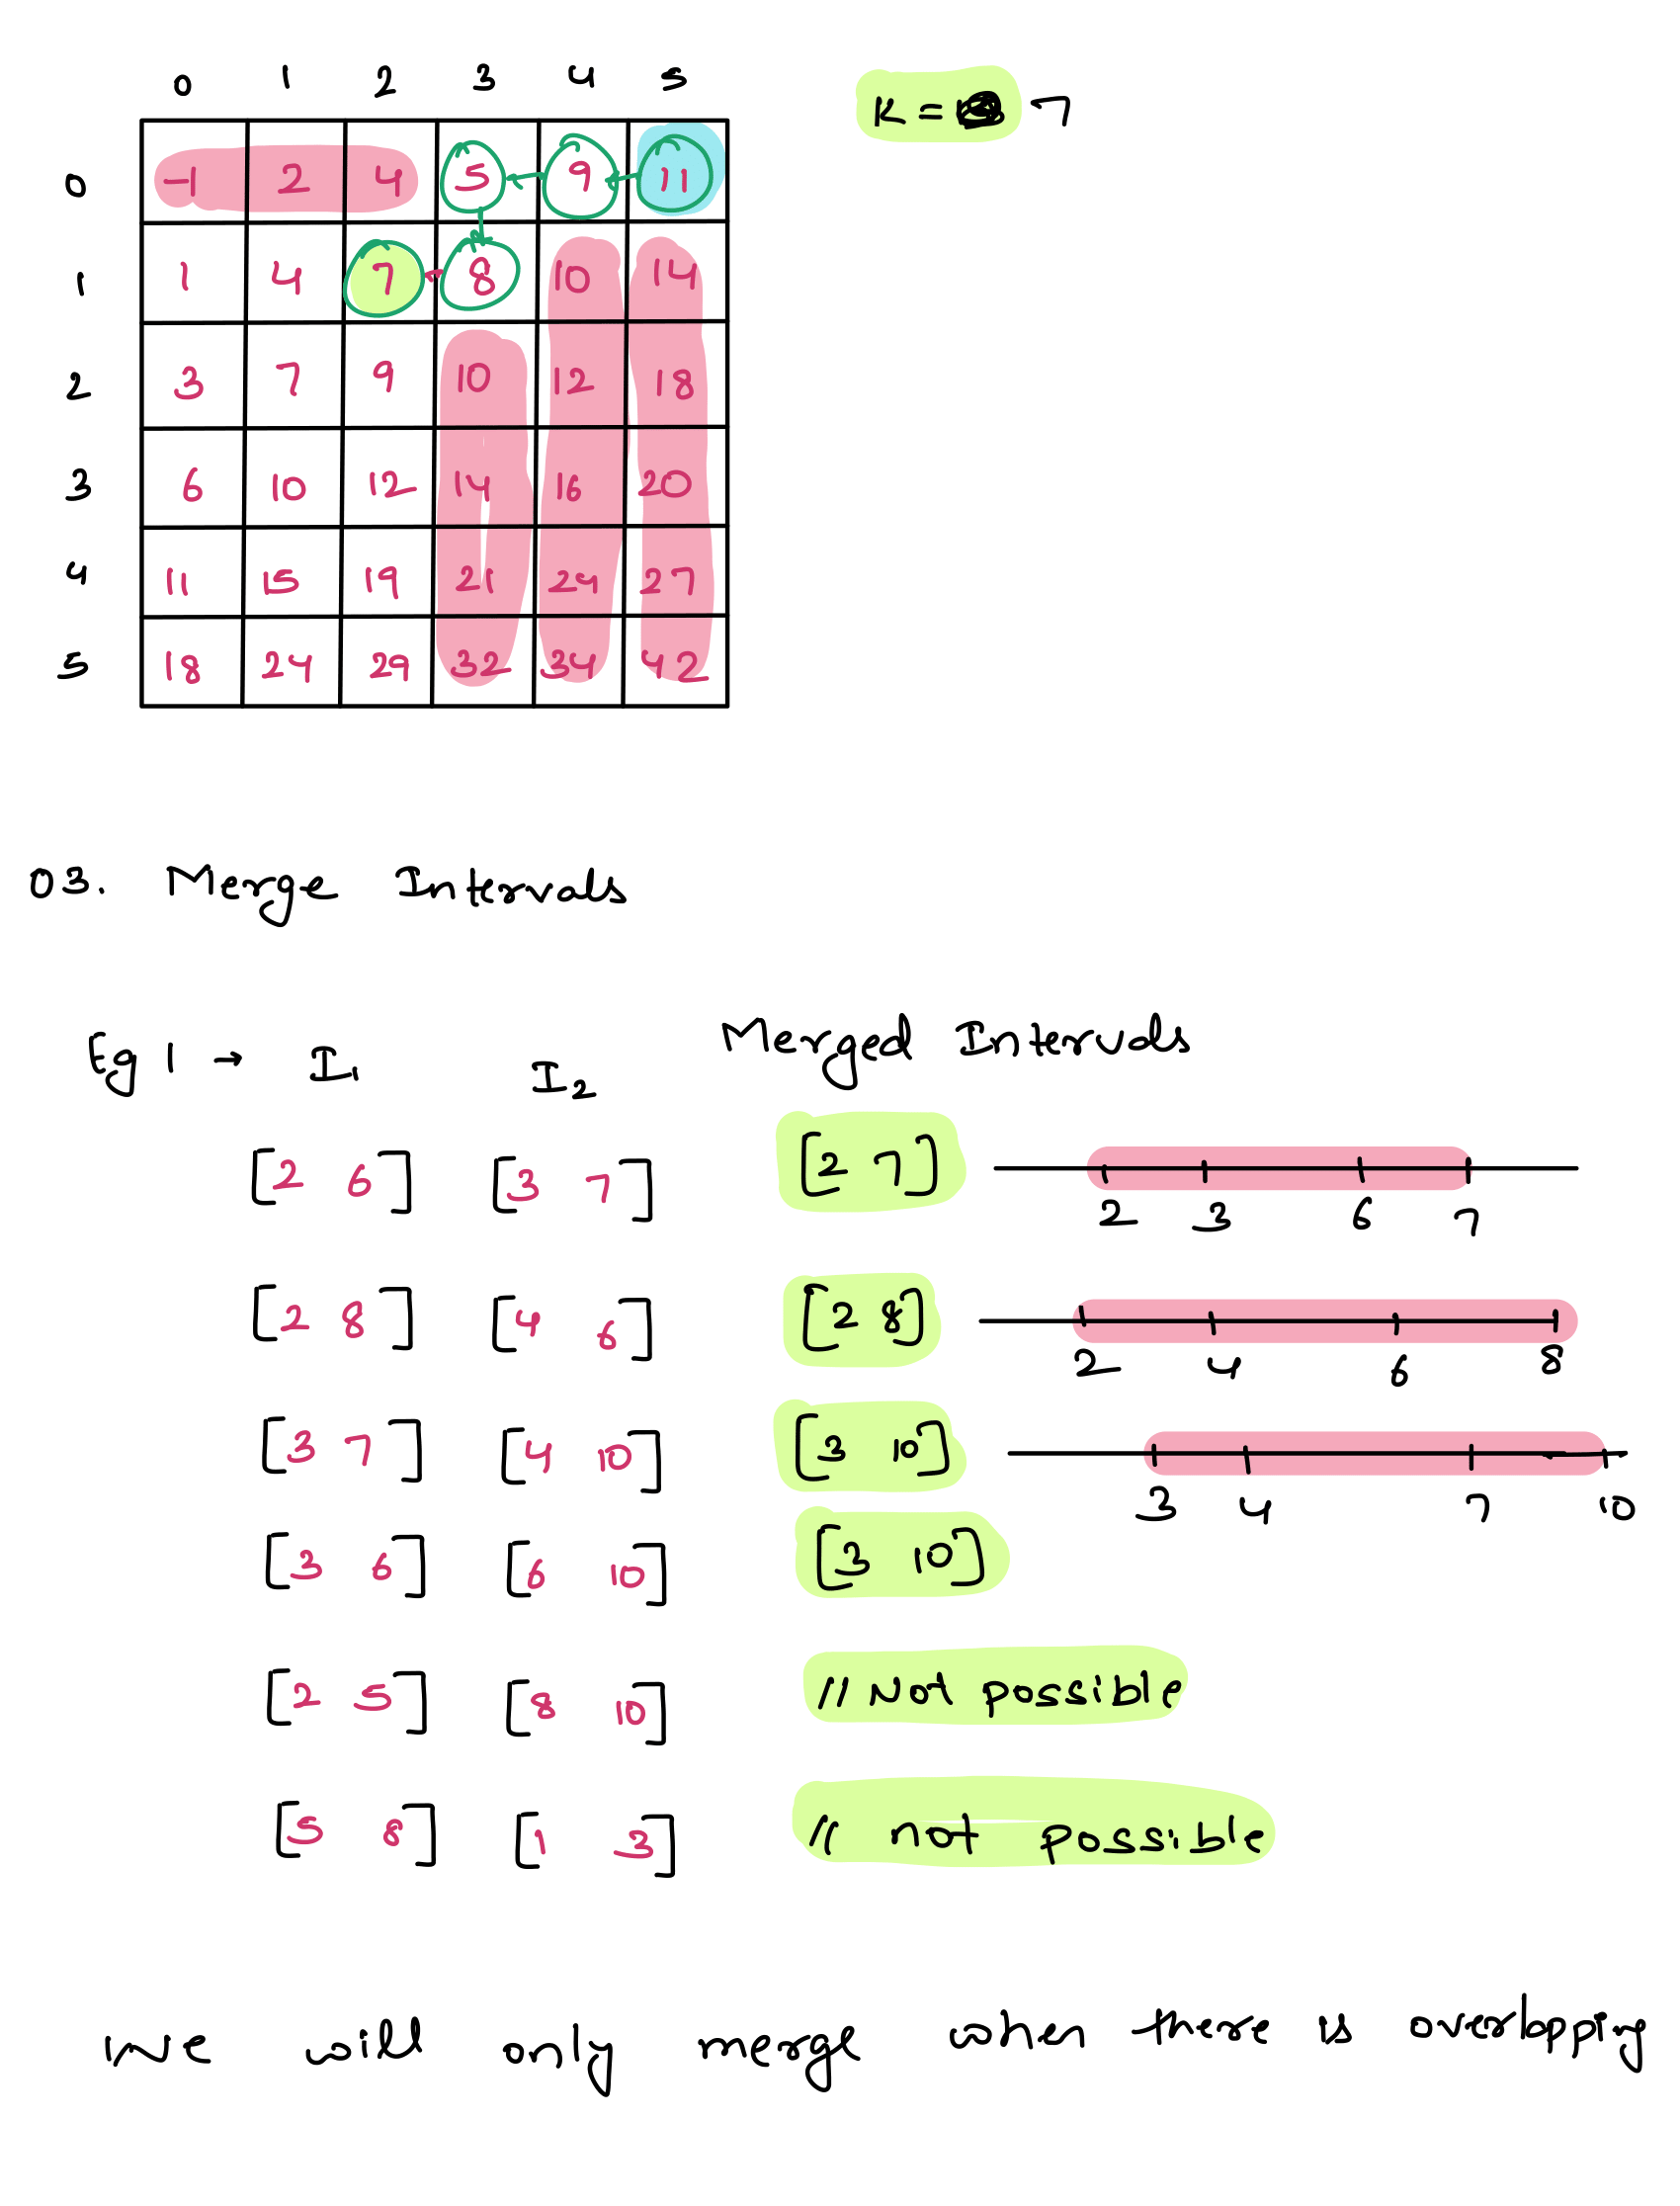 0 1 2 3 4 5
K = 7
0 -1 2 4 5 9 11
1 1 4 7 8 10 14
2 3 7 9 10 12 18
3 6 10 12 14 16 20
4 11 15 19 21 24 27
5 18 24 29 32 34 42
03. Merge Intervals
Eg 1 → I1 I2 Merged Intervals
[2 6] [3 7] [2 7]
2 3 6 7
[2 8] [4 6] [2 8]
2 4 6 8
[3 7] [4 10] [3 10]
3 4 7 10
[3 6] [6 10] [3 10]
[2 5] [8 10] // Not possible
[5 8] [1 3] // not possible
we will only merge when there is overlapping